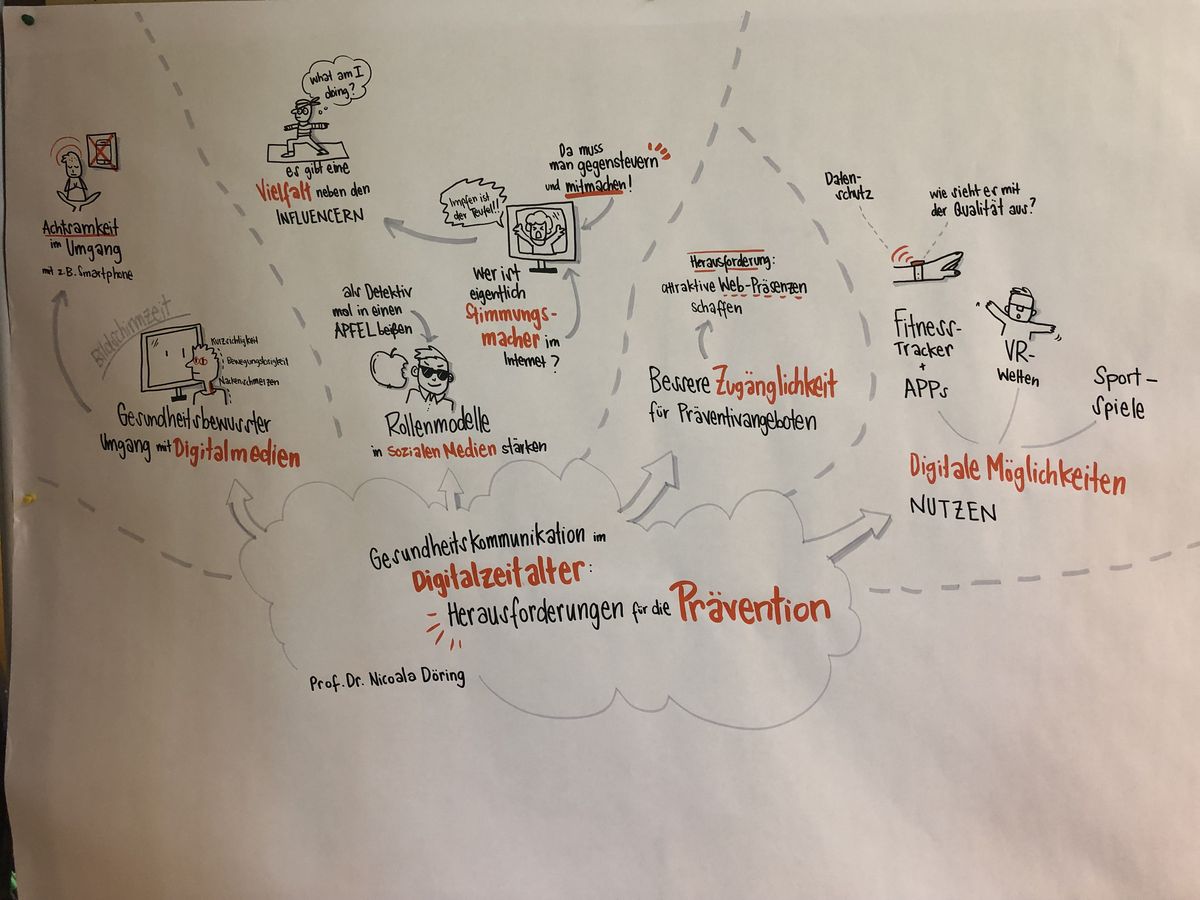 what am I
doing?
es gibt eine
Vielfalt neben den
INFLUENCERN
Achtsamkeit
im Umgang
mit z.B. Smartphone
Bildschirmzeit
Kurzsichtigkeit
Bewegungslosigkeit
Nackenschmerzen
Gesundheitsbewusster
Umgang mit Digitalmedien
Da muss
man gegensteuern
und mitmachen!
Impfen ist
der Teufel!!
wer ist
eigentlich
Stimmungs-
macher im
Internet?
als Detektiv
mal in einen
APFEL beißen
Rollenmodelle
in sozialen Medien stärken
Herausforderung:
attraktive Web-Präsenzen
schaffen
Bessere Zugänglichkeit
für Präventivangeboten
Daten-
schutz
wie sieht er mit
der Qualität aus?
Fitness-
Tracker
+
APPs
VR-
Welten
Sport-
spiele
Digitale Möglichkeiten
NUTZEN
Gesundheitskommunikation im
Digitalzeitalter:
Herausforderungen für die Prävention
Prof. Dr. Nicoala Döring